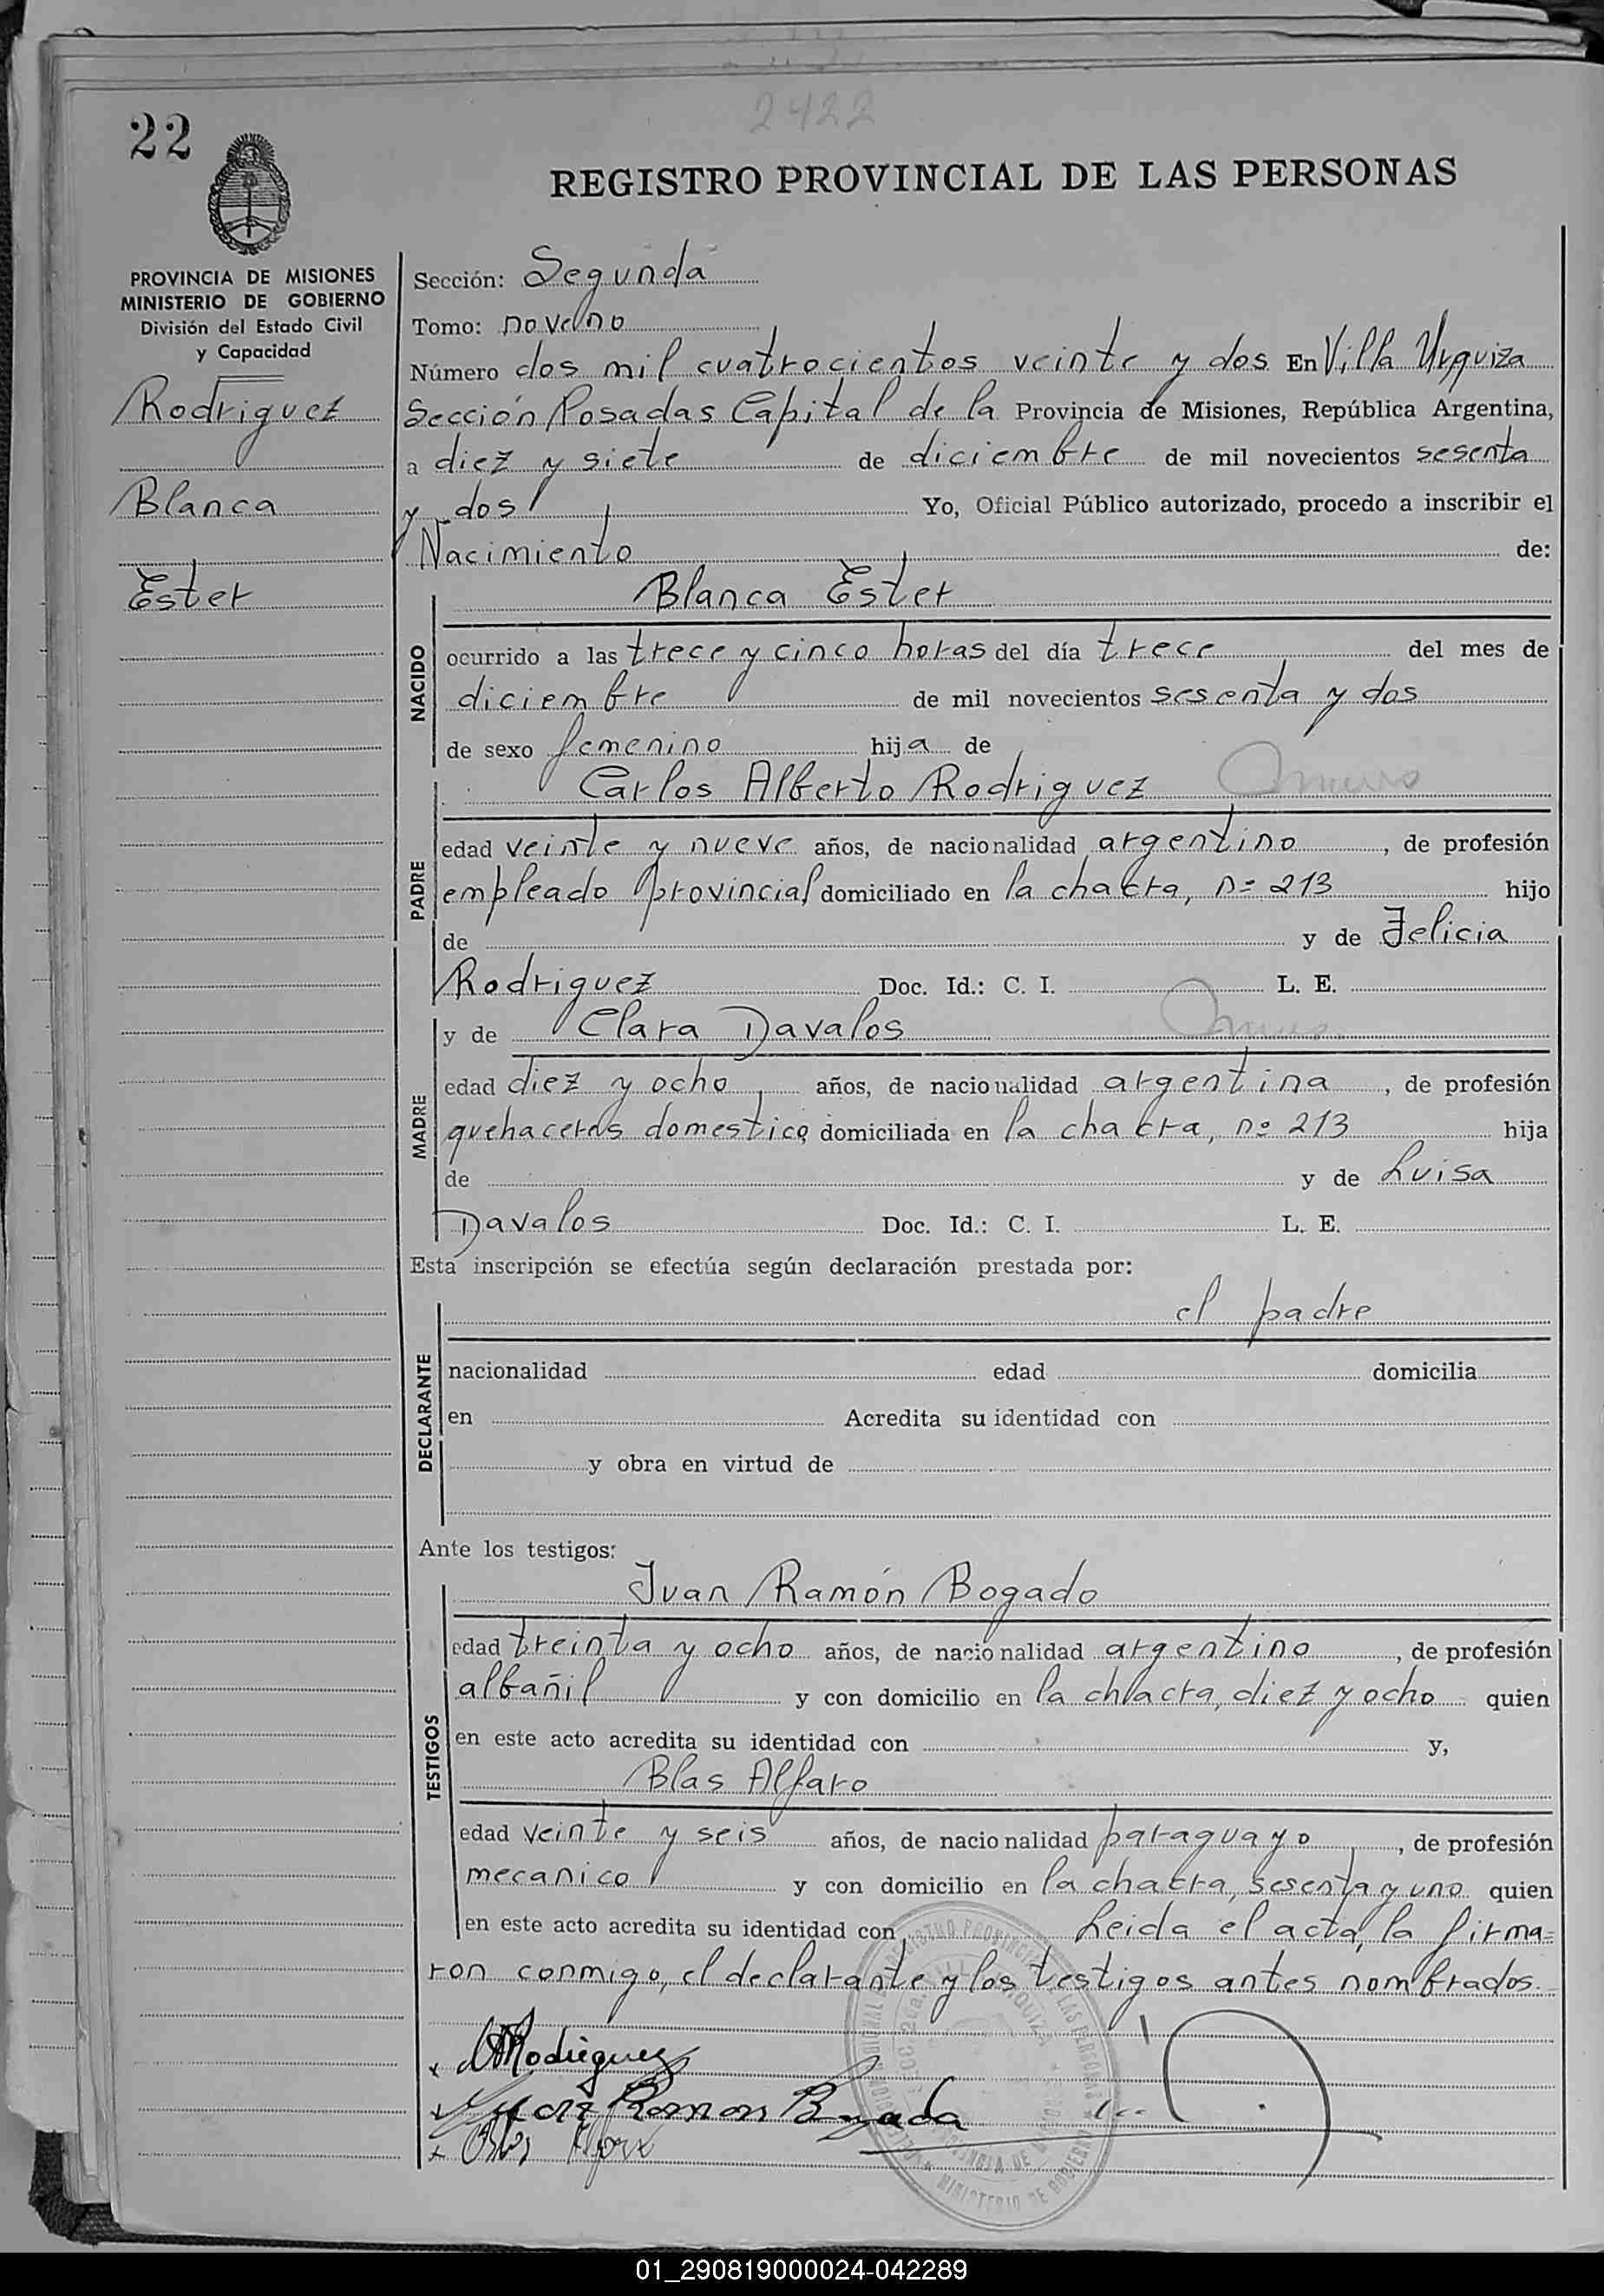 22
2422
REGISTRO PROVINCIAL DE LAS PERSONAS
PROVINCIA DE MISIONES
MINISTERIO DE GOBIERNO
División del Estado Civil
y Capacidad
Rodriguez
Blanca
Ester
Sección: Segunda
Tomo: noveno
Número dos mil cuatrocientos veinte y dos En Villa Urquiza
Sección Posadas Capital de la Provincia de Misiones, República Argentina,
a diez y siete de diciembre de mil novecientos sesenta
y dos Yo, Oficial Público autorizado, procedo a inscribir el
Nacimiento de:
Blanca Ester
NACIDO
ocurrido a las trece y cinco horas del día trece del mes de
diciembre de mil novecientos sesenta y dos
de sexo femenino hija de
Carlos Alberto Rodriguez
PADRE
edad veinte y nueve años, de nacionalidad argentino, de profesión
empleado provincial domiciliado en la chacra, nº 213 hijo
de y de Felicia
Rodriguez Doc. Id.: C. I. L. E.
y de Clara Davalos
MADRE
edad diez y ocho años, de nacionalidad argentina, de profesión
quehaceres domestico domiciliada en la chacra, nº 213 hija
de y de Luisa
Davalos Doc. Id.: C. I. L. E.
Esta inscripción se efectúa según declaración prestada por:
el padre
DECLARANTE
nacionalidad edad domicilia
en Acredita su identidad con
y obra en virtud de
Ante los testigos:
Juan Ramón Bogado
TESTIGOS
edad treinta y ocho años, de nacionalidad argentino, de profesión
albañil y con domicilio en la chacra, diez y ocho quien
en este acto acredita su identidad con y,
Blas Alfaro
edad veinte y seis años, de nacionalidad paraguayo, de profesión
mecanico y con domicilio en la chacra, sesenta y uno quien
en este acto acredita su identidad con Leida el acta, la firma=
ron conmigo, el declarante y los testigos antes nombrados.
Rodriguez
Ramon Bogado
01_290819000024-042289